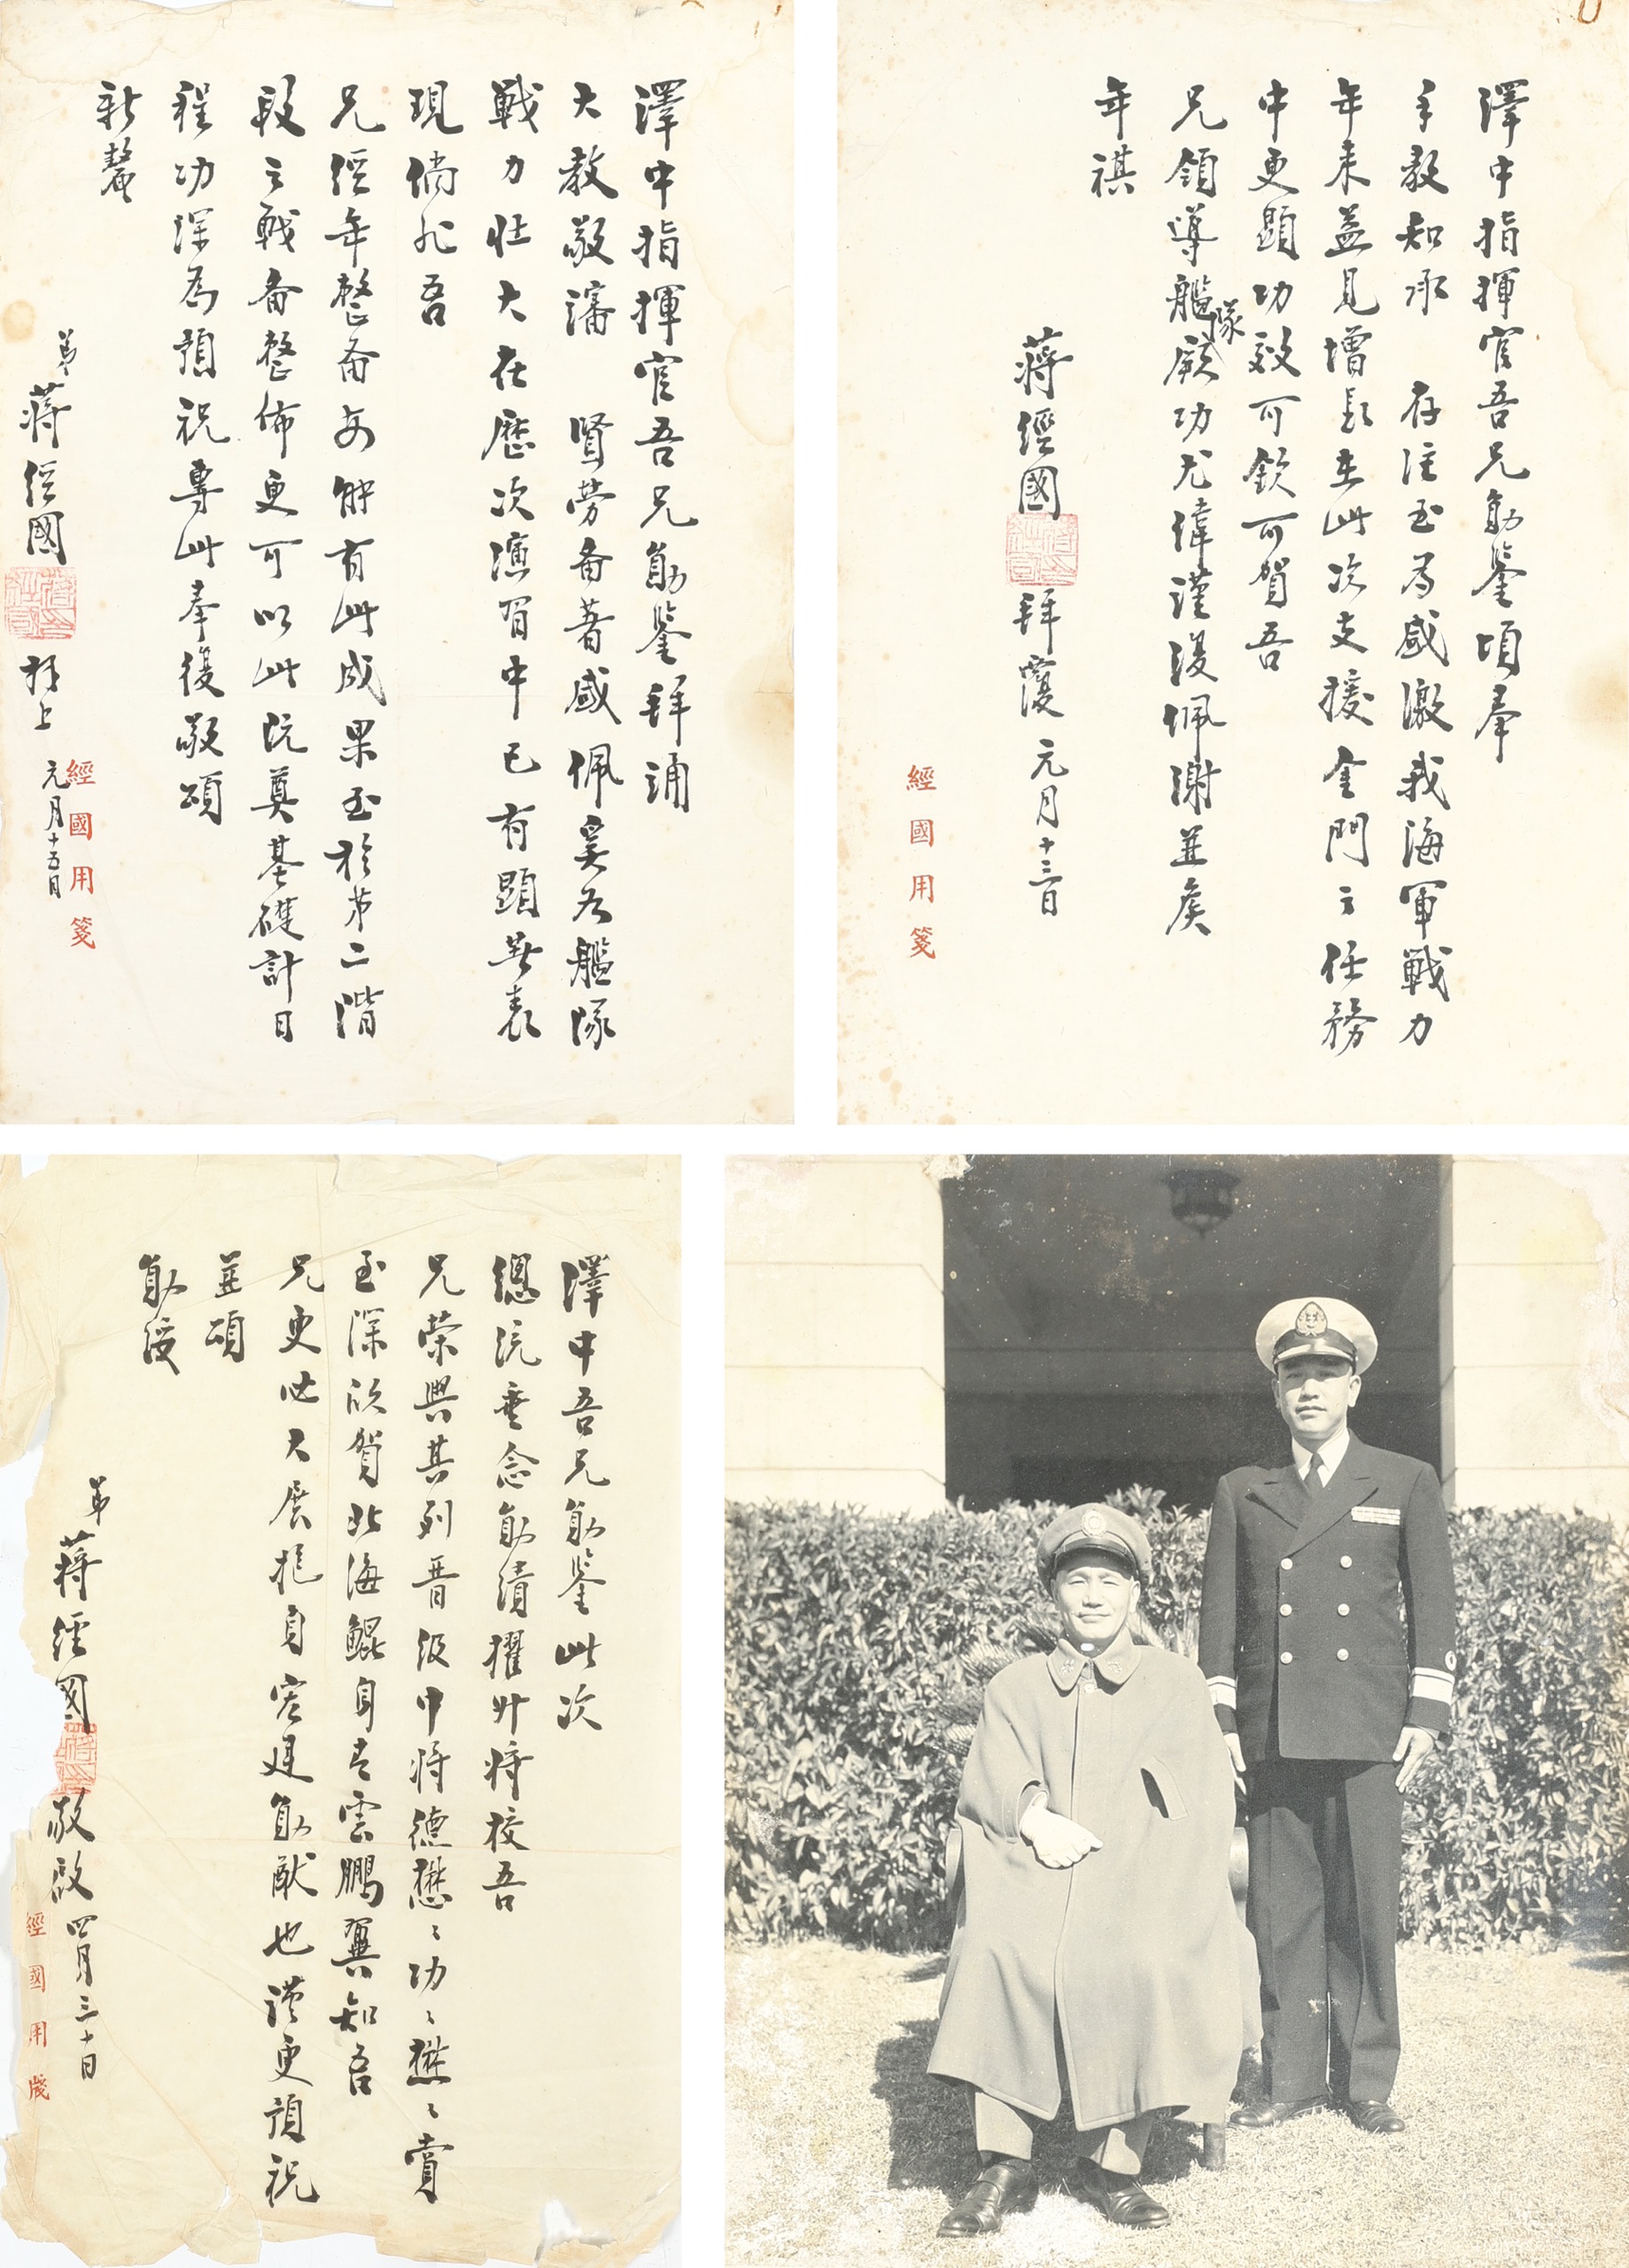 澤中指揮官吾兄勛鑒拜誦
大教敬審 賢勞備著感佩奚如艦隊
戰力壯大在歷次演習中已有顯著表
現倘非吾
兄經年整備安能有此成果至於第二階
段之戰備整備更可以此阮奠基礎計日
程功深為預祝專此奉復敬頌
新釐
弟蔣經國拜上 元月十五日
經國用箋
澤中指揮官吾兄勛鑒頃奉
手教知承 存注至為感激我海軍戰力
年來益見增長在此次支援金門之任務
中更顯功效可欽可賀吾
兄領導艦隊厥功尤偉謹復佩謝並侯
年祺
蔣經國拜覆 元月十三日
經國用箋
澤中吾兄勛鑒此次
總統垂念勛績擢升將校吾
兄榮與其列晉級中將德懋懋功功懋懋賞
至深欣賀北海鯤身青雲鵬翼知吾
兄更必大展抱負宏建勛猷也謹更預祝
並頌
勛綏
弟蔣經國敬啟 四月三十日
經國用箋